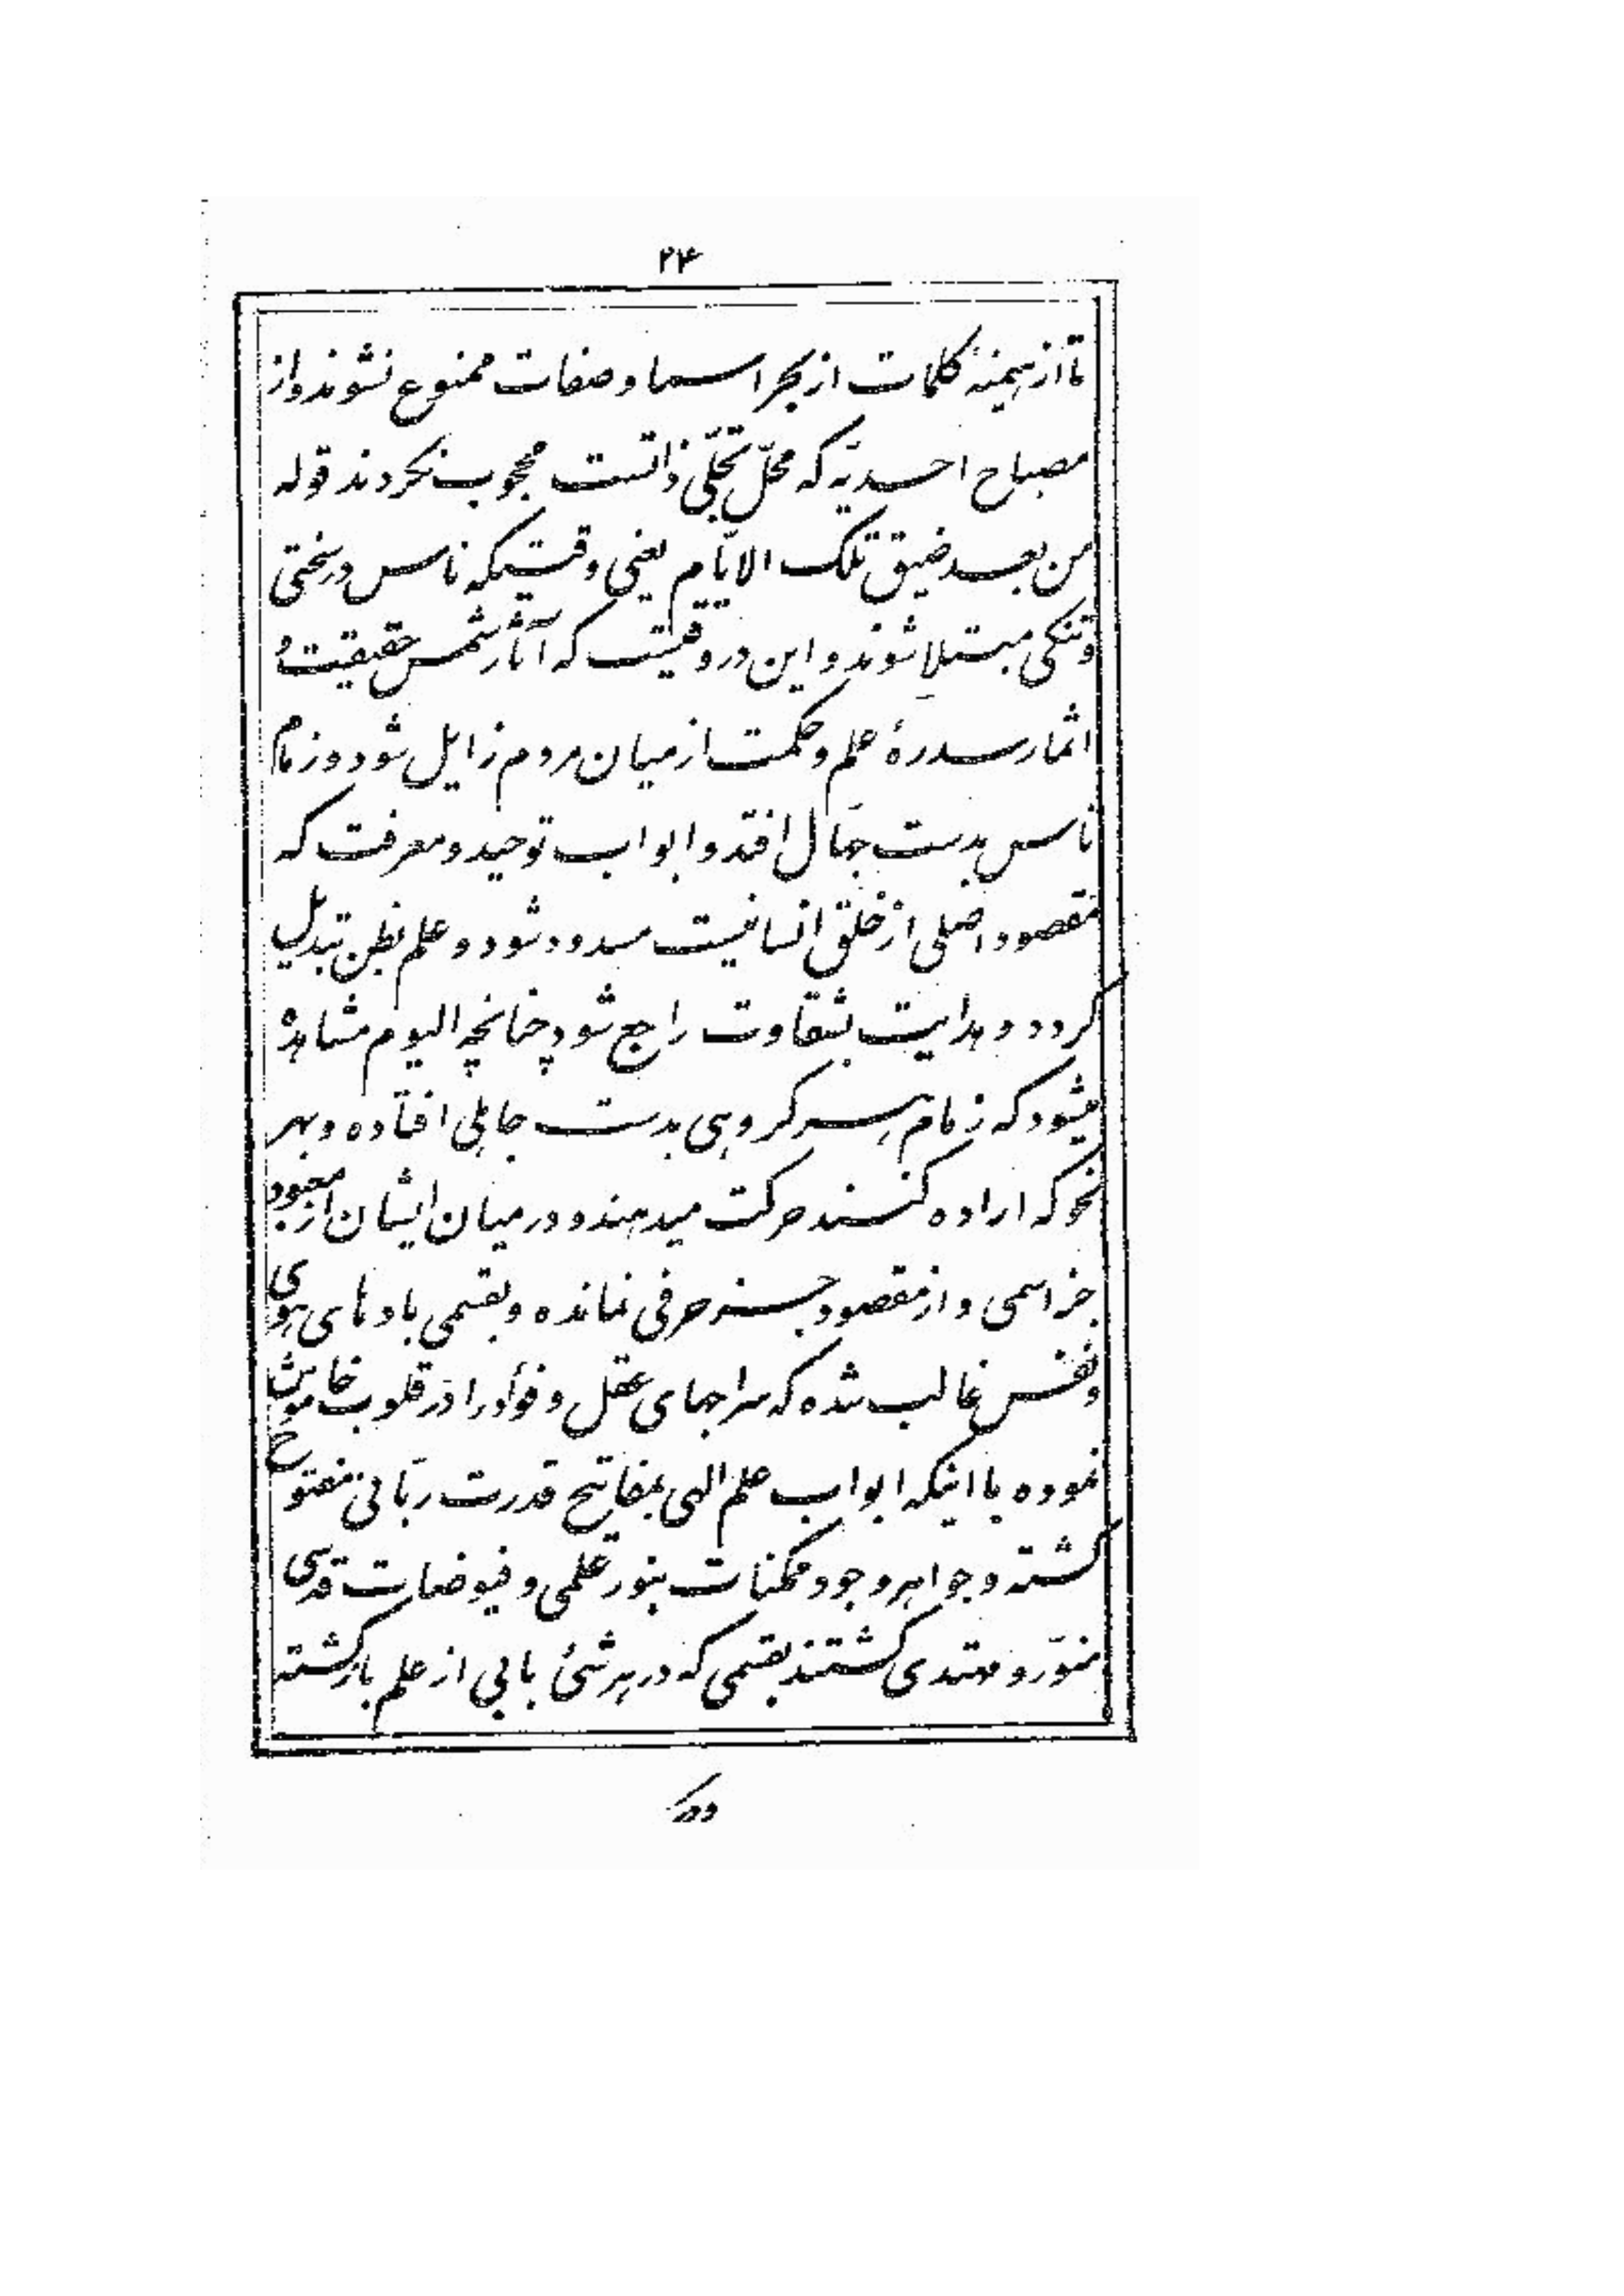 ۲۴
تا از هیمنهٔ کلمات از بحر اسما و صفات ممنوع نشوند و از
مصباح احدیّه که محلّ تجلّی ذاتست محجوب نگردند قوله
من بعد ضیق تلک الایّام یعنی وقتیکه ناس در سختی
و تنگی مبتلا شوند و این در وقتیست که آثار شمس حقیقت و
اثمار سدرهٔ علم و حکمت از میان مردم زایل شود و زمام
ناس بدست جهّال افتد و ابواب توحید و معرفت که
مقصود اصلی از خلق انسانیست مسدود شود و علم بظن تبدیل
گردد و هدایت بشقاوت راجع شود چنانچه الیوم مشاهده
میشود که زمام هر گروهی بدست جاهلی افتاده و بهر
نحو که اراده کنند حرکت میدهند و در میان ایشان از معبود
جز اسمی و از مقصود جز حرفی نمانده و بقسمی بادهای هوی
و نفس غالب شده که سراجهای عقل و فؤاد را در قلوب خاموش
نموده با اینکه ابواب علم الهی بمفاتیح قدرت ربّانی مفتوح
گشته و جواهر وجود ممکنات بنور علمی و فیوضات قدسی
منوّر و مهتدی گشتند بقسمی که در هر شئ بابی از علم باز گشته
و در